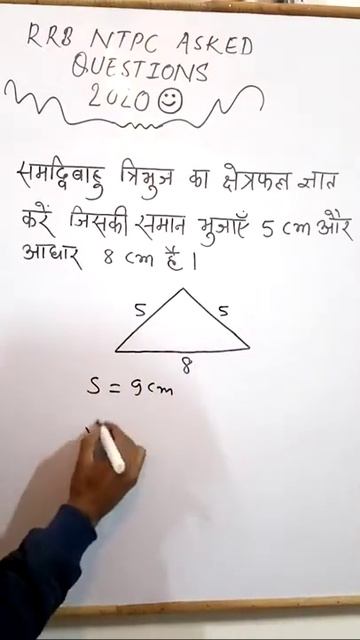 RRB NTPC ASKED
QUESTIONS
2020
समद्विबाहु त्रिभुज का क्षेत्रफल ज्ञात
करें जिसकी समान भुजाएँ 5 cm और
आधार 8 cm है।
5 5
8
S = 9 cm